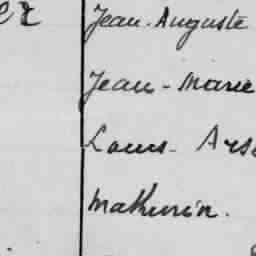 Jean-Auguste
Jean-Marie
Louis-
Mathurin.